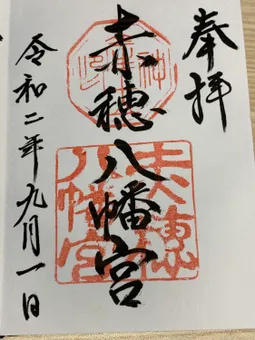 奉拝
赤穂八幡宮
赤穂
八幡宮
令和二年九月一日